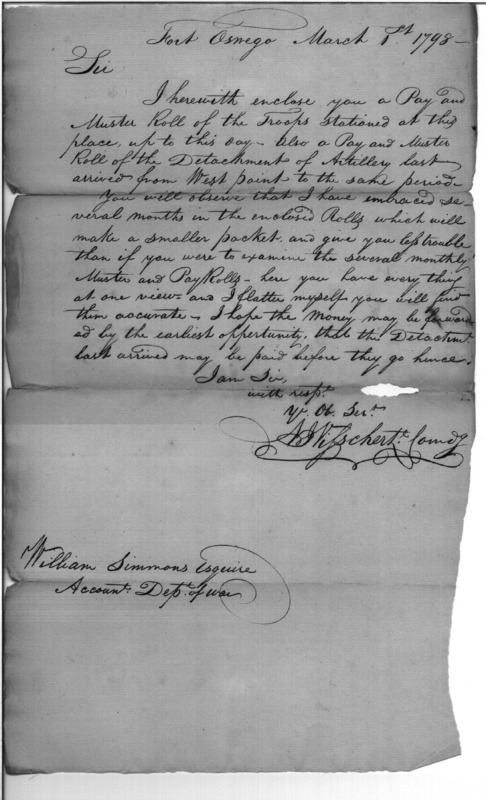 Fort Oswego March 1st. 1798 —
Sir
I herewith enclose you a Pay and
Muster Roll of the Troops stationed at this
place, up to this day – also a Pay and Muster
Roll of the Detachment of Artillery last
arrived from West point to the same period.
You will observe that I have embraced se
veral months in the enclosed Rolls which will
make a smaller packet and give you less trouble
than if you were to examine the several monthly
Muster and Pay Rolls – here you have every thing
at one view – and I flatter myself you will find
them accurate – I hope the Money may be forward
ed by the earliest oppertunity, that the Detachmt.
last arrived may be paid before they go hence.
I am Sir,
with respt.
Yr. Ob. Sert.
Comdg
William Simmons Esquire
Accountt. Dept. of war